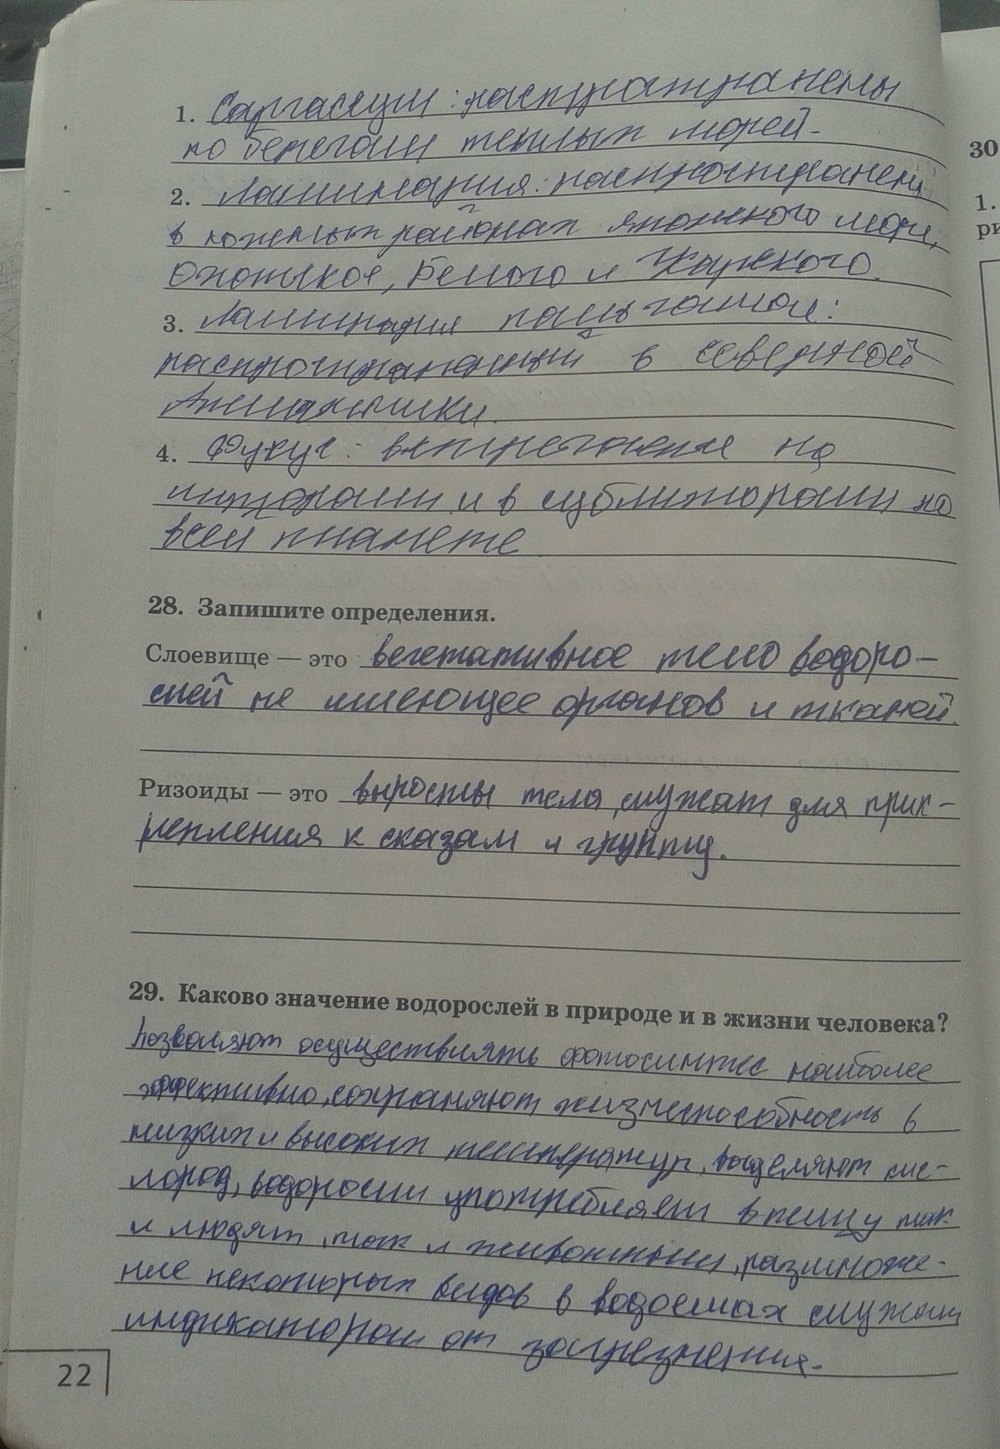 1. Саргассум: распространены
по берегам теплых морей.
2. Ламинария: распространены
в южных районах японского моря,
Охотское, Белого и Карского.
3. Ламинария пальчатая:
распространенный в северной
Атлантики.
4. Фукус: встречается на
литорали и в сублиторали на
всей планете
28. Запишите определения.
Слоевище — это вегетативное тело водоро-
слей не имеющее органов и тканей.
Ризоиды — это выросты тела, служат для прик-
репления к сказам и грунту.
29. Каково значение водорослей в природе и в жизни человека?
Позволяют осуществлять фотосинтес наиболее
эффективно, сохраняют жизнеспособность в
низких и высоких температур, выделяют кис-
лород, водоросли употребляет в пищу так
и людят, так и животными, размноже-
ние некоторых видов в водоемах служат
индикатором от загрезнения.
22
30
1.
ри